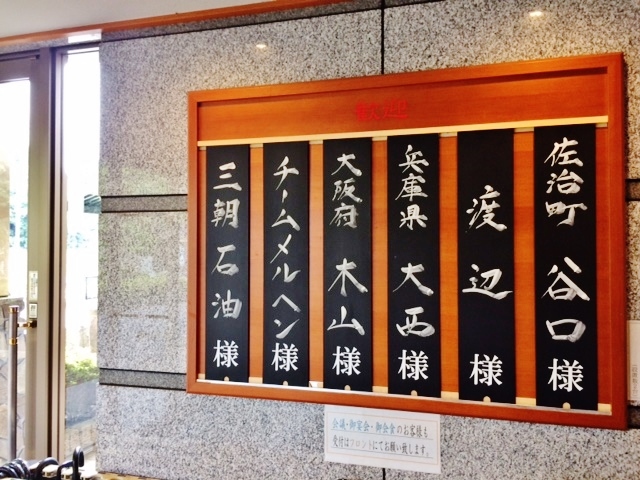 歓迎
佐治町 谷口様
渡辺様
兵庫県 大西様
大阪府 木山様
チームメルヘン様
三朝石油様
会議・御宴会・御会食のお客様も
受付はフロントにてお願い致します。